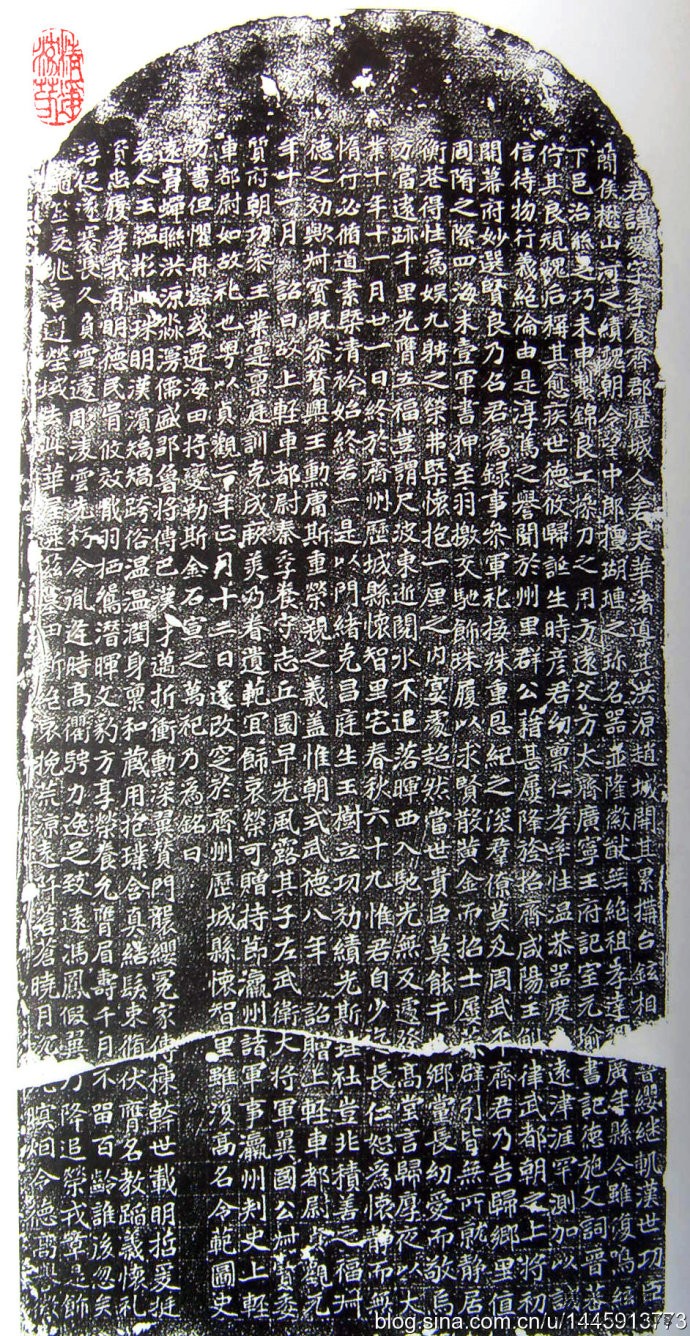 君諱愛字季養齊郡歷城人君夫華渚尊其洪源趙城開其累構台鉉相 纓継軌漢世功臣
簡侯懋山河之績魏朝令望中郎擅瑚璉之珍名器並隆徽猷無絕祖孝達 廣年縣令雖復鳴絃
下邑治絲之巧未申製錦良工操刀之用方遠父方大齊廣寧王府記室元瑜書記德施文詞晉茗
佇其良規魏后稱其愈疾世德攸歸誕生時彦君幼稟仁孝率性温恭器度 遠津涯罕測加以
信待物行義絕倫由是淳篤之譽聞於州里群公藉甚屢降旍招齊咸陽王 律武都朝之上將初
開幕府妙選賢良乃召君為録事叅軍礼接殊重恩紀之深羣僚莫及周武平齊君乃告歸鄉里值
周隋之際四海未壹軍書狎至羽檄交馳飾珠履以求賢散黄金而招士屢 辟引皆無所就静居
衡巷得性為娱九騁之榮弗槩懷抱一厘之内宴處超然當世貴臣莫能干 鄉黨長幼愛而敬焉
方當遠跡千里光膺五福豈謂尺波東逝閱水不追落暉西入馳光無反 高堂言歸厚夜以大
業十年十一月廿一日終於齊州歷城縣懷智里宅春秋六十九惟君自少 長仁恕為懷静而無
惰行必脩道素槩清衿始終若一是以門緒克昌庭生玉樹立功効績光斯 社豈非積善之福
德之効歟叔寳既叅賛興王勳庸斯重榮親之義蓋惟朝式武德八年 詔贈上輕車都尉 觀元
年十一月 詔曰故上輕車都尉秦季養守志丘園早先風露其子左武衛大將軍翼國公叔寳委
質府朝功叅王業寔稟庭訓克成厥美乃眷遺範宜飾哀榮可贈持節瀛州諸軍事瀛州刺史上輕
車都尉如故礼也粤以貞觀二年正月十二日還改窆於齊州歷城縣懷智里雖復高名令範圖史
功書但懼舟壑或遷海田將變勒斯金石宣之萬祀乃為銘曰
遠胄蟬聯洪源淼漫儒盛鄒魯將傳巴漢才逓折衝勲深翼賛門襲纓冕家傳楨榦世載明招爰挺
若人玉韞彬幽珠明漢濱矯矯跨俗温温潤身稟和葳用抱璞含真結髮束脩伏膺名教蹈義懷礼
資忠履孝我有明德民胥攸效戢羽栖鴛潛暉文豹方享榮養允膺眉壽千月不留百齡誰後忽矣
浮促 襄長久負雪邊周凌雲先朽令胤逢時高衢騁力逸足致遠馮鳳假翼乃降追榮戎章是飾
荒涼遠 蒼蒼曉月 暝烟令德
blog.sina.com.cn/u/1445913773